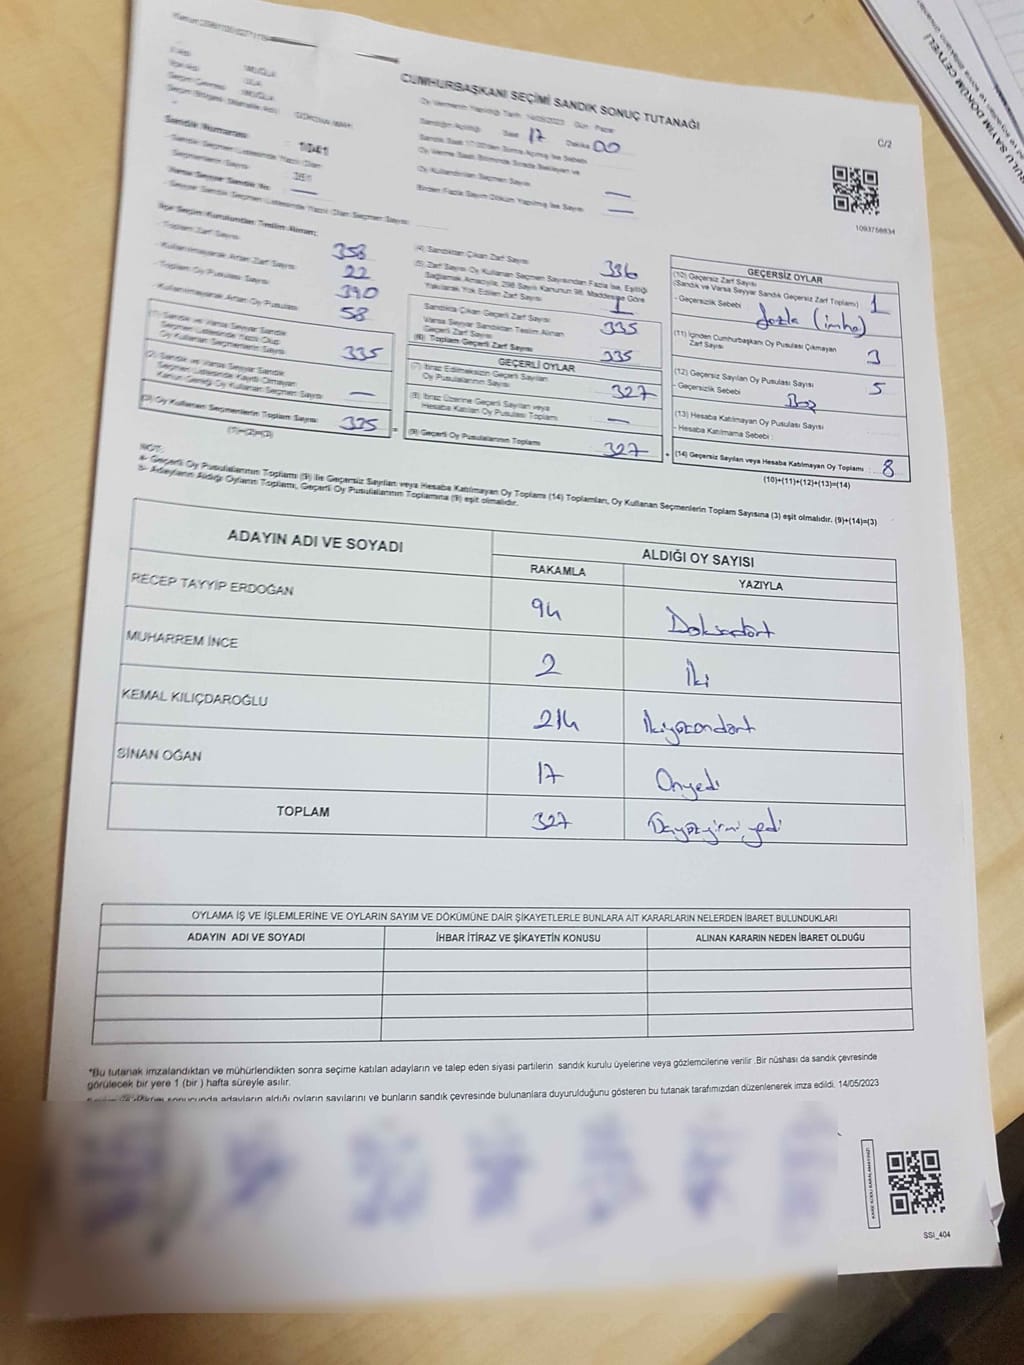 KURULU SAYIM DÖKÜM CETVELİ
CUMHURBAŞKANI SEÇİMİ SANDIK SONUÇ TUTANAĞI
C/2
1093756834
İl Adı MUĞLA
İlçe Adı ULA
Seçim Çevresi MUĞLA
Oy Vermenin Yapıldığı Tarih 14/05/2023 Gün Pazar
Sandığın Açıldığı Saat 17 Dakika 00
Sandık Numarası 1041
Oy Kullandırılan Seçmen Sayısı —
Birden Fazla Sayım Döküm Yapılmış İse Sayısı —
İlçe Seçim Kurulundan Teslim Alınan;
- Toplam Zarf Sayısı 358
- Kullanılmayarak Artan Zarf Sayısı 22
- Toplam Oy Pusulası Sayısı 390
- Kullanılmayarak Artan Oy Pusulası 58
(1) Sandık ve Varsa Seyyar Sandık
Seçmen Listesinde Yazılı Olup
Oy Kullanan Seçmenlerin Sayısı 335
(2) Sandık ve Varsa Seyyar Sandık
Seçmen Listesinde Kayıtlı Olmayan
Kanun Gereği Oy Kullanan Seçmen Sayısı —
(3) Oy Kullanan Seçmenlerin Toplam Sayısı 335
(1)+(2)=(3)
(4) Sandıktan Çıkan Zarf Sayısı 336
(5) Zarf Sayısı Oy Kullanan Seçmen Sayısından Fazla İse, Eşitliği
Sağlamak Amacıyla, 298 Sayılı Kanunun 98. Maddesine Göre
Yakılarak Yok Edilen Zarf Sayısı 1
Sandıkta Çıkan Geçerli Zarf Sayısı 335
Varsa Seyyar Sandıktan Teslim Alınan
Geçerli Zarf Sayısı
(6) Toplam Geçerli Zarf Sayısı 335
GEÇERLİ OYLAR
(7) İtiraz Edilmeksizin Geçerli Sayılan
Oy Pusulalarının Sayısı 327
(8) İtiraz Üzerine Geçerli Sayılan veya
Hesaba Katılan Oy Pusulası Toplamı —
(9) Geçerli Oy Pusulalarının Toplamı 327
GEÇERSİZ OYLAR
(10) Geçersiz Zarf Sayısı
(Sandık ve Varsa Seyyar Sandık Geçersiz Zarf Toplamı) 1
- Geçersizlik Sebebi fazla (imha)
(11) İçinden Cumhurbaşkanı Oy Pusulası Çıkmayan
Zarf Sayısı 3
(12) Geçersiz Sayılan Oy Pusulası Sayısı 5
- Geçersizlik Sebebi Boş
(13) Hesaba Katılmayan Oy Pusulası Sayısı
- Hesaba Katılmama Sebebi :
(14) Geçersiz Sayılan veya Hesaba Katılmayan Oy Toplamı : 8
(10)+(11)+(12)+(13)=(14)
NOT:
a- Geçerli Oy Pusulalarının Toplamı (9) ile Geçersiz Sayılan veya Hesaba Katılmayan Oy Toplamı (14) Toplamları, Oy Kullanan Seçmenlerin Toplam Sayısına (3) eşit olmalıdır. (9)+(14)=(3)
b- Adayların Aldığı Oyların Toplamı, Geçerli Oy Pusulalarının Toplamına (9) eşit olmalıdır.
ADAYIN ADI VE SOYADI
ALDIĞI OY SAYISI
RAKAMLA YAZIYLA
RECEP TAYYİP ERDOĞAN 94 Doksandört
MUHARREM İNCE 2 İki
KEMAL KILIÇDAROĞLU 214 İkiyüzondört
SİNAN OĞAN 17 Onyedi
TOPLAM 327 Üçyüzyirmiyedi
OYLAMA İŞ VE İŞLEMLERİNE VE OYLARIN SAYIM VE DÖKÜMÜNE DAİR ŞİKAYETLERLE BUNLARA AİT KARARLARIN NELERDEN İBARET BULUNDUKLARI
ADAYIN ADI VE SOYADI İHBAR İTİRAZ VE ŞİKAYETİN KONUSU ALINAN KARARIN NEDEN İBARET OLDUĞU
*Bu tutanak imzalandıktan ve mühürlendikten sonra seçime katılan adayların ve talep eden siyasi partilerin sandık kurulu üyelerine veya gözlemcilerine verilir .Bir nüshası da sandık çevresinde
görülecek bir yere 1 (bir ) hafta süreyle asılır.
sonucunda adayların aldığı oyların sayılarını ve bunların sandık çevresinde bulunanlara duyurulduğunu gösteren bu tutanak tarafımızdan düzenlenerek imza edildi. 14/05/2023
KARE KODU KARALAMAYINIZ!
SSİ_404